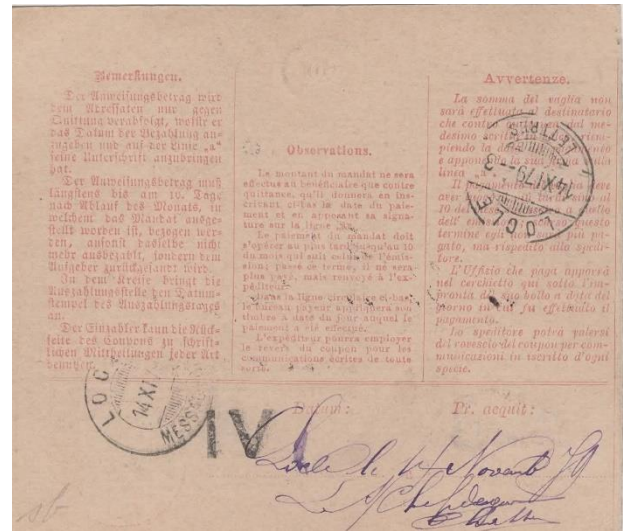 Bemerkungen.
Der Anweisungsbetrag wird
dem Adressaten nur gegen
Quittung verabfolgt, wofür er
das Datum der Bezahlung an-
zugeben und auf der Linie „a"
seine Unterschrift anzubringen
hat.
Der Anweisungsbetrag muß
längstens bis am 10. Tage
nach Ablauf des Monats, in
welchem das Mandat ausge-
stellt worden ist, bezogen wer-
den, ansonst dasselbe nicht
mehr ausbezahlt, sondern dem
Aufgeber zurückgesandt wird.
In dem Kreise bringt die
Auszahlungsstelle den Datum-
stempel des Auszahlungstages
an.
Der Einzahler kann die Rück-
seite des Coupons zu schrift-
lichen Mittheilungen jeder Art
benutzen.
Observations.
Le montant du mandat ne sera
effectué au bénéficiaire que contre
quittance, qu'il donnera en ins-
crivant ci-bas la date du paie-
ment et en apposant sa signa-
ture sur la ligne
Le paiement du mandat doit
s'opérer au plus tard jusqu'au 10
du mois qui suit celui de l'émis-
sion; passé ce terme, il ne sera
plus payé, mais renvoyé à l'ex-
péditeur.
Dans la ligne circulaire ci-bas
le bureau payeur appliquera son
timbre à date du jour auquel le
paiement a été effectué.
L'expéditeur pourra employer
le revers du coupon pour les
communications écrites de toute
sorte.
Avvertenze.
La somma del vaglia non
sarà effettuata al destinatario
che contro quitanza del me-
desimo
piendo la
e apponendo la sua
linea
Il
aver
10 del
dell'
termine egli pa-
gato, ma rispedito allo spedi-
tore.
L'Uffizio che paga apporrà
nel cerchietto qui sotto
fronta il suo bollo a data del
giorno in cui fu effettuato il
pagamento.
Lo speditore potrà valersi
del rovescio del coupon per com-
municazioni in iscritto d'ogni
specie.
LOCLE
14 XI 79 - 3
LETTRES
LOC
14 XI 7
MESSAG
IV
Datum: Pr. acquit:
Locle le 14 Novemb 79